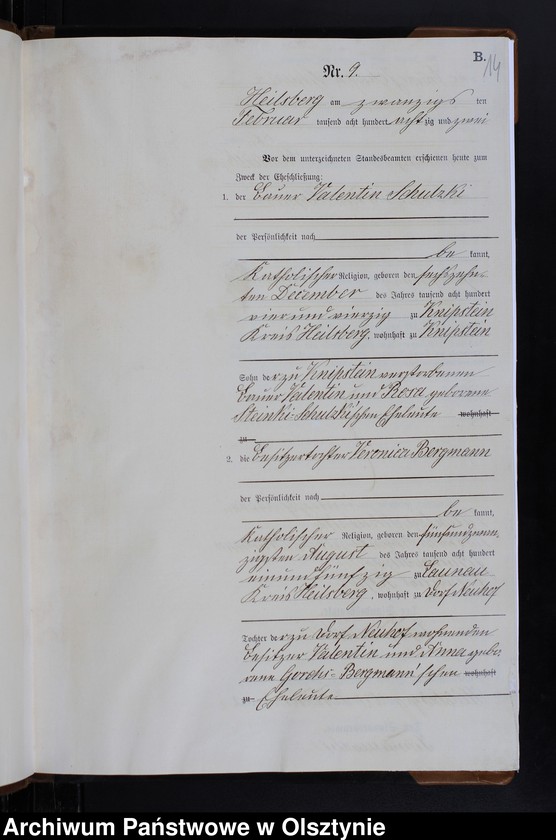 B.
14
Nr. 9.
Heilsberg am zwanzigs ten
Februar tausend acht hundert achtzig und zwei
Vor dem unterzeichneten Standesbeamten erschienen heute zum
Zweck der Eheschließung:
1. der Bauer Valentin Schulzki
der Persönlichkeit nach
be kannt,
Katholischer Religion, geboren den sechszehn-
ten December des Jahres tausend acht hundert
vier und vierzig zu Knipstein
Kreis Heilsberg, wohnhaft zu Knipstein
Sohn der zu Knipstein verstorbenen
Bauer Valentin und Rosa geborene
Steinki-Schulzki'schen Eheleute wohnhaft
zu
2. die Besitzertochter Veronica Bergmann
der Persönlichkeit nach
be kannt,
Katholischer Religion, geboren den fünfundzwan-
zigsten August des Jahres tausend acht hundert
einundfünfzig zu Launau
Kreis Heilsberg, wohnhaft zu Dorf Neuhof
Tochter der zu Dorf Neuhof wohnenden
Besitzer Valentin und Anna gebo
rene -Bergmann'schen wohnhaft
zu Eheleute
Archiwum Państwowe w Olsztynie